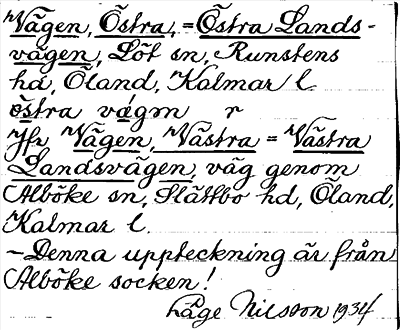 Vägen, Östra, = Östra Lands-
vägen, Löt sn, Runstens
hd, Öland, Kalmar l.
östra vágen r
Jfr Vägen, Västra = Västra
Landsvägen, väg genom
Alböke sn, Slättbo hd, Öland,
Kalmar l.
– Denna uppteckning är från
Alböke socken!
Låge Nilsson 1934